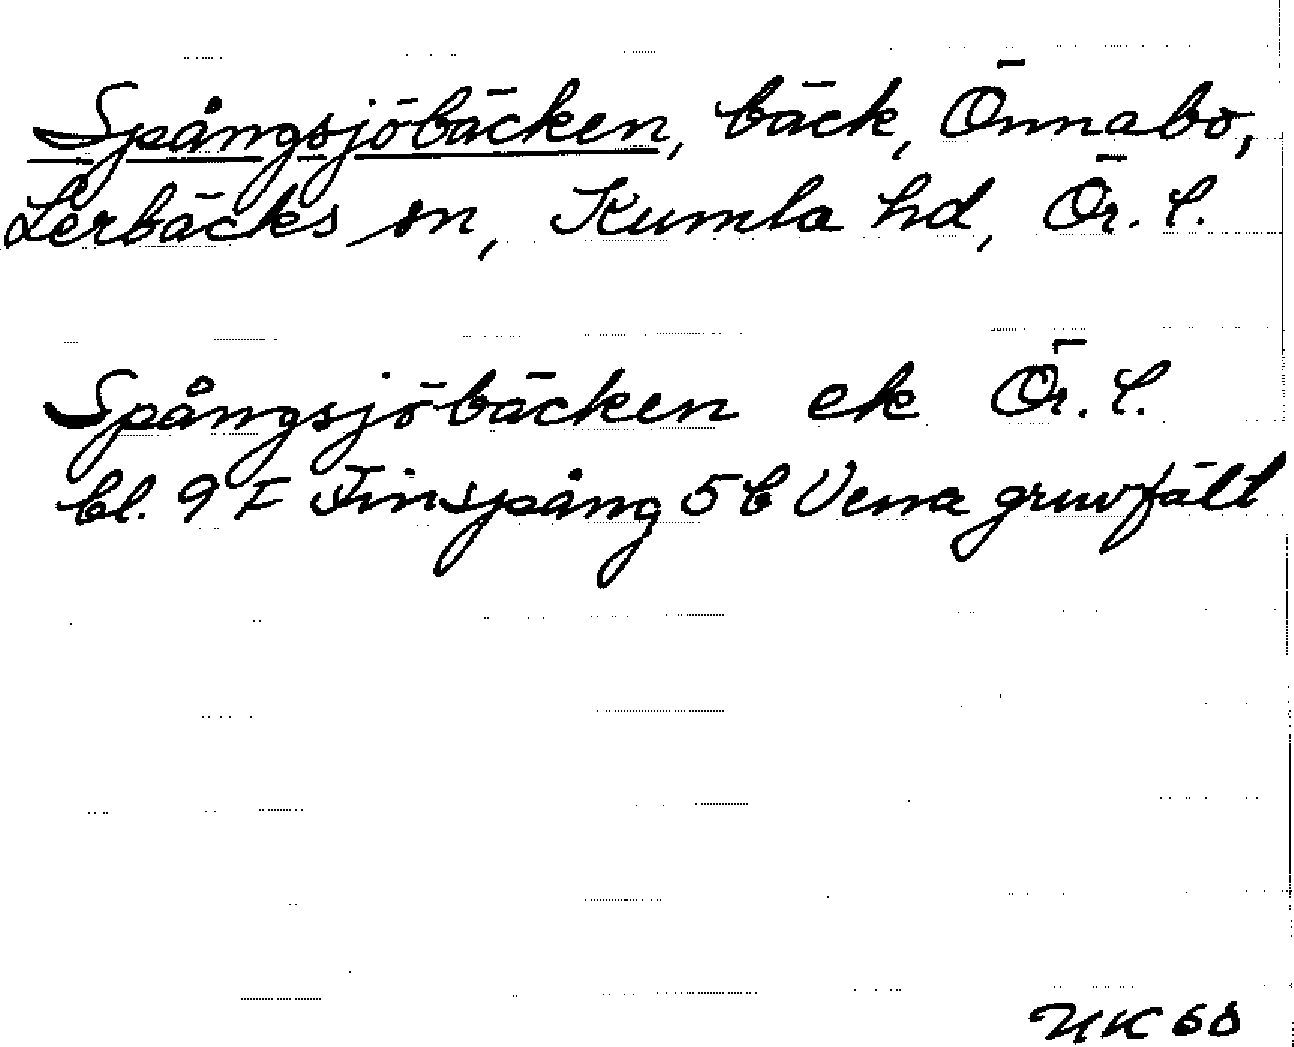 Spångsjöbäcken, bäck, Önnabo,
Lerbäcks sn, Kumla hd, Ör. l.
Spångsjöbäcken ek Ör. l.
bl. 9 F Finspång 5 b Vena gruvfält
UK 68